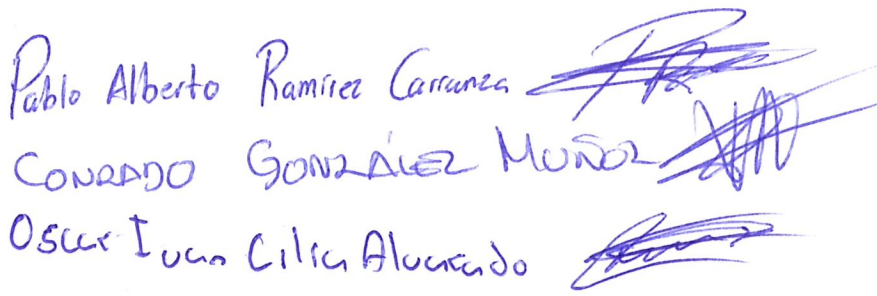 Pablo Alberto Ramírez Carranza
CONRADO GONZÁLEZ MUÑOZ
Oscar Ivan Cilia Alvarado